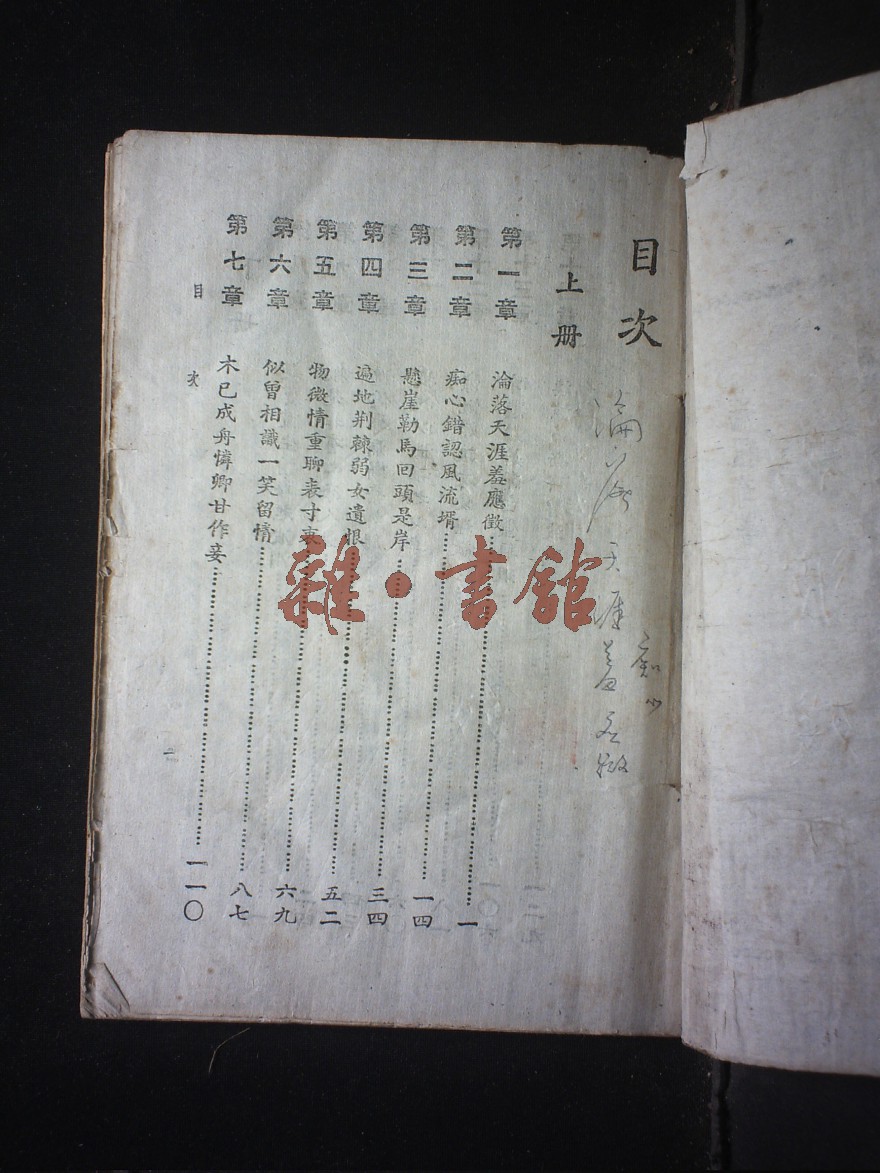 目次
上册
第一章 淪落天涯羞應徵……一
第二章 痴心錯認風流壻……一四
第三章 懸崖勒馬回頭是岸……三四
第四章 遍地荆棘弱女遺恨……五二
第五章 物微情重聊表寸衷……六九
第六章 似曾相識一笑留情……八七
第七章 木已成舟憐卿甘作妾……一一〇
目次
一
淪落天涯羞应徵
痴心
雜·書館